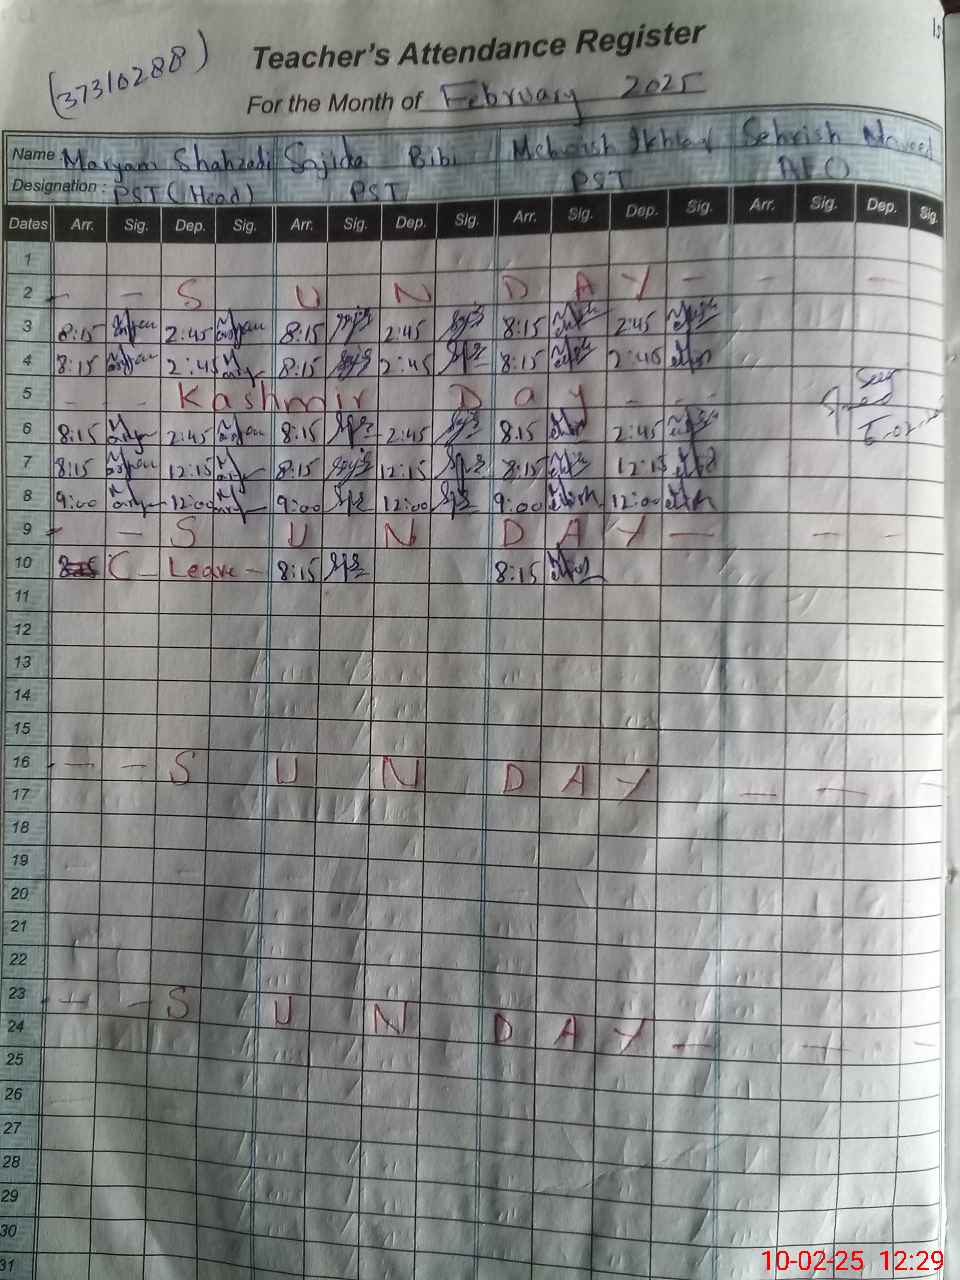 (37310288)
Teacher's Attendance Register
For the Month of February 2025
Name Maryam Shahzadi Sajida Bibi Mehwish Ikhlaq Sehrish Naveed
Designation: PST (Head) PST PST AEO
Dates Arr. Sig. Dep. Sig. Arr. Sig. Dep. Sig. Arr. Sig. Dep. Sig. Arr. Sig. Dep. Sig.
1
2 - - S U N D A Y - - - -
3 8:15 2:45 8:15 2:45 8:15 2:45
4 8:15 2:45 8:15 2:45 8:15 2:45
5 - - Kashmir Day - - -
6 8:15 2:45 8:15 2:45 8:15 2:45
7 8:15 12:15 8:15 12:15 8:15 12:15
8 9:00 12:00 9:00 12:00 9:00 12:00
9 - - S U N D A Y - - -
10 C - Leave - 8:15 8:15
11
12
13
14
15
16 - - S U N D A Y - - -
17
18
19
20
21
22
23 - - S U N D A Y - - -
24
25
26
27
28
29
30
31
10-02-25 12:29